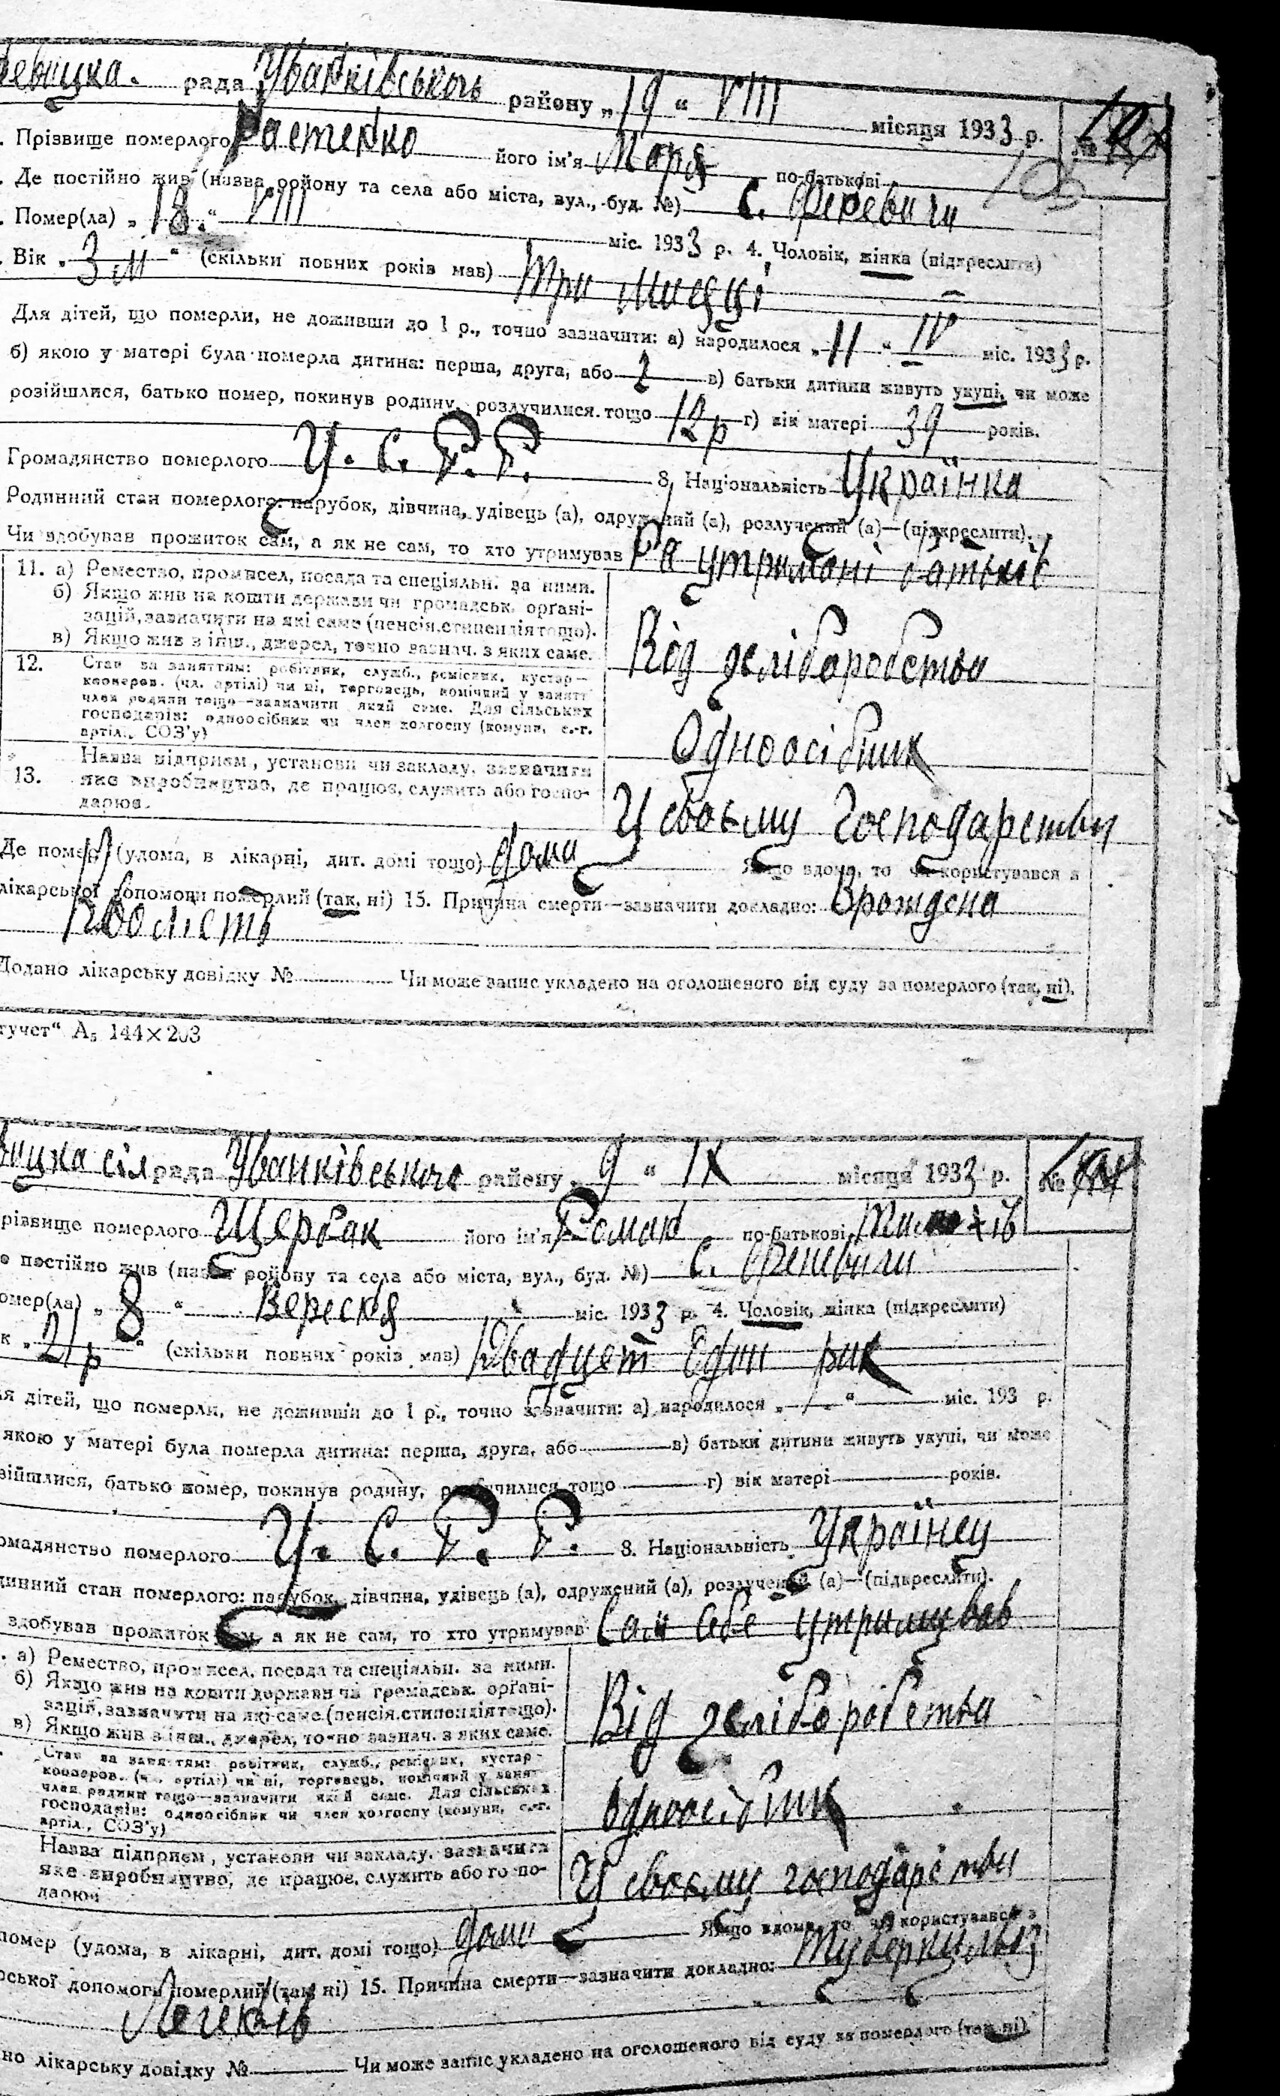 рада Іванківського району „19“ VIII місяця 1933 р. №
Прізвище померлого його ім'я Марія по-батькові
Де постійно жив (назва району та села або міста, вул., буд. №) с. Феневичи
Помер(ла) „18.“ VIII міс. 1933 р. 4. Чоловік, жінка (підкреслити)
Вік „3 м“ (скільки повних років мав) три мисяці
Для дітей, що померли, не доживши до 1 р., точно зазначити: а) народилося „11“ IV міс. 1933 р.
б) якою у матері була померла дитина: перша, друга, або в) батьки дитини живуть укупі, чи може
розійшлися, батько помер, покинув родину, розлучилися тощо 12 р г) вік матері 39 років.
Громадянство померлого У. С. Р. Р. 8. Національність Українка
Родинний стан померлого: парубок, дівчина, удівець (а), одружений (а), розлучений (а)—(підкреслити).
Чи здобував прожиток сам, а як не сам, то хто утримував На утримані батьків
11. а) Ремество, промисел, посада та спеціяльн. за ними.
б) Якщо жив на кошти держави чи громадськ. орґані-
зацій, зазначити на які саме (пенсія, стипендія тощо).
в) Якщо жив з інш., джерел, точно зазнач. з яких саме.
Від хліборобства
12. Стан за заняттям: робітник, служб., ремісник, кустар—
кооперов. (чл. артілі) чи ні, торговець, помічний у занятт
член родини тощо—зазначити який саме. Для сільських
господарів: одноосібник чи член колгоспу (комуни, с.-г.
артіл., СОЗ'у)
Одноосібник
13. Назва підприєм, установи чи закладу, зазначити
яке виробництво, де працює, служить або госпо-
дарює.
У своєму господарстви
Де помер (удома, в лікарні, дит. домі тощо) дома Якщо вдома, то чи користувався з
лікарської допомоги померлий (так, ні) 15. Причина смерти—зазначити докладно: Врождена
Додано лікарську довідку № Чи може запис укладено на оголошеного від суду за померлого (так, ні).
тучет“ А₅ 144×203
сілрада Іванківського району „9“ IX місяця 1933 р. №
різвище померлого Щербак його ім'я Роман по-батькові
е постійно жив (назва району та села або міста, вул., буд. №) с. Феневичи
омер(ла) „8“ Вересня міс. 1933 р. 4. Чоловік, жінка (підкреслити)
к „21 р“ (скільки повних років мав) Двадцет Един рик
ля дітей, що померли, не доживши до 1 р., точно зазначити: а) народилося „—“ міс. 193 р.
якою у матері була померла дитина: перша, друга, або в) батьки дитини живуть укупі, чи може
зійшлися, батько помер, покинув родину, розлучилися тощо г) вік матері років.
омадянство померлого У. С. Р. Р. 8. Національність Українец
динний стан померлого: парубок, дівчина, удівець (а), одружений (а), розлучений (а)—(підкреслити).
здобував прожиток сам, а як не сам, то хто утримував Сам себе утримував
а) Ремество, промисел, посада та спеціяльн. за ними.
б) Якщо жив на кошти держави чи громадськ. орґані-
зацій, зазначити на які саме (пенсія, стипендія тощо).
в) Якщо жив з інш., джерел, точно зазнач. з яких саме.
Від хліборобства
Стан за заняттям: робітник, служб., ремісник, кустар—
кооперов. (чл. артілі) чи ні, торговець, помічний у занят
член родини тощо—зазначити який саме. Для сільських
господарів: одноосібник чи член колгоспу (комуни, с.-г.
артіл., СОЗ'у)
Одноосібник
Назва підприєм, установи чи закладу, зазначити
яке виробництво, де працює, служить або госпо-
дарює
У своєму господарстви
помер (удома, в лікарні, дит. домі тощо) дома Якщо вдома, то чи користувався з
рської допомоги померлий (так, ні) 15. Причина смерти—зазначити докладно: Туберкульоз
Легенів
но лікарську довідку № Чи може запис укладено на оголошеного від суду за померлого (так, ні).